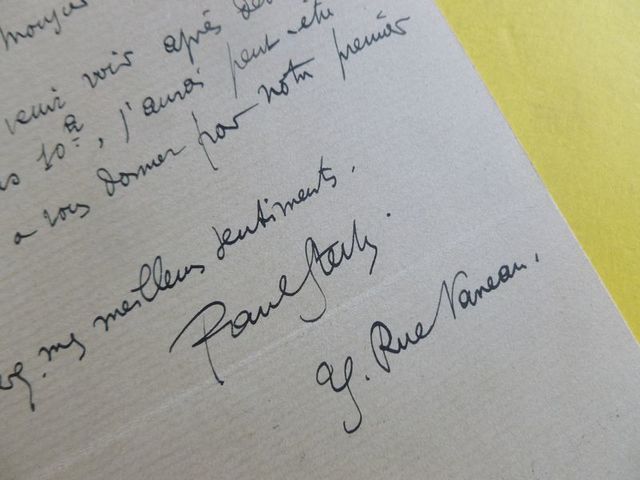 venir voir après
10ª, j'aurai peut-être
a vous donner pour notre premier
mes meilleurs sentiments.
Paul
Rue Vaneau.